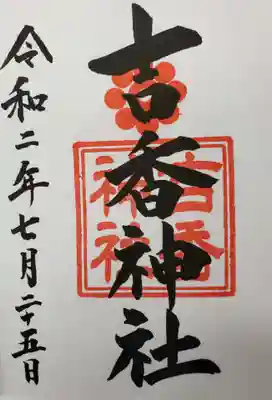 吉香神社
吉香神社
令和二年七月二十五日